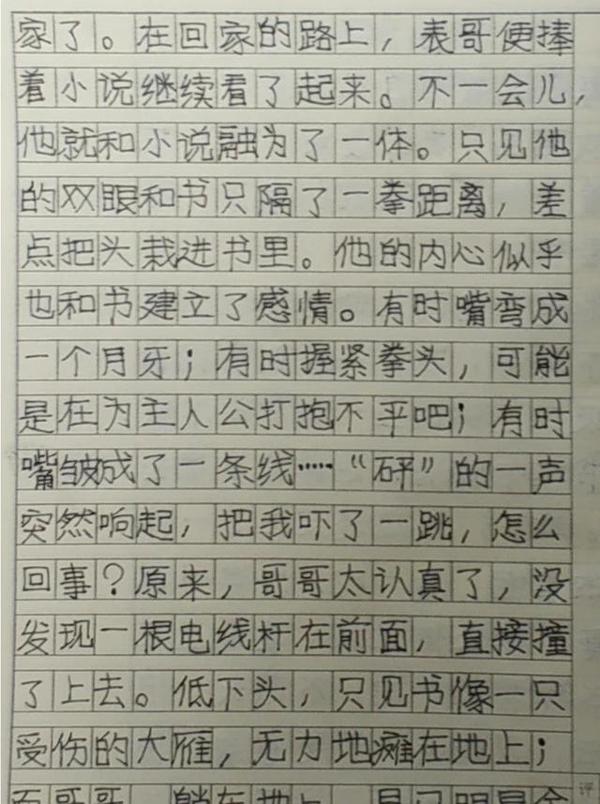 家了。在回家的路上，表哥便捧
着小说继续看了起来。不一会儿，
他就和小说融为了一体。只见他
的双眼和书只隔了一拳距离，差
点把头栽进书里。他的内心似乎
也和书建立了感情。有时嘴弯成
一个月牙；有时握紧拳头，可能
是在为主人公打抱不平吧；有时
嘴皱成了一条线……“砰”的一声
突然响起，把我吓了一跳，怎么
回事？原来，哥哥太认真了，没
发现一根电线杆在前面，直接撞
了上去。低下头，只见书像一只
受伤的大雁，无力地瘫在地上；
而哥哥，躺在地上，
评